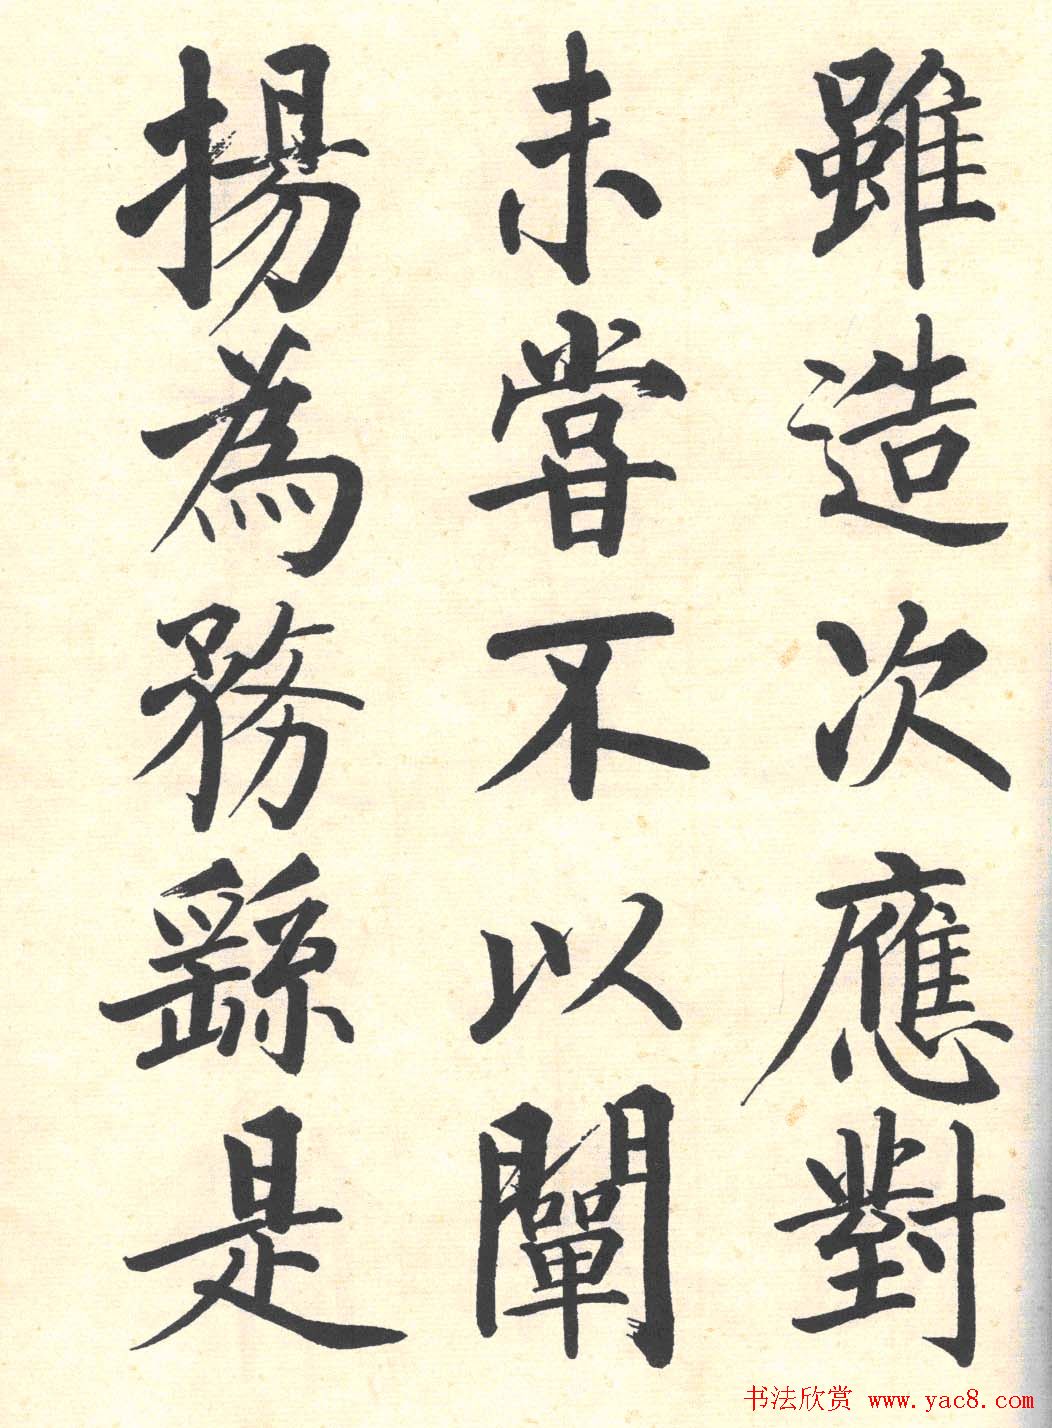 雖造次應對
未嘗不以闡
揚為務繇是
书法欣赏 www.yac8.com